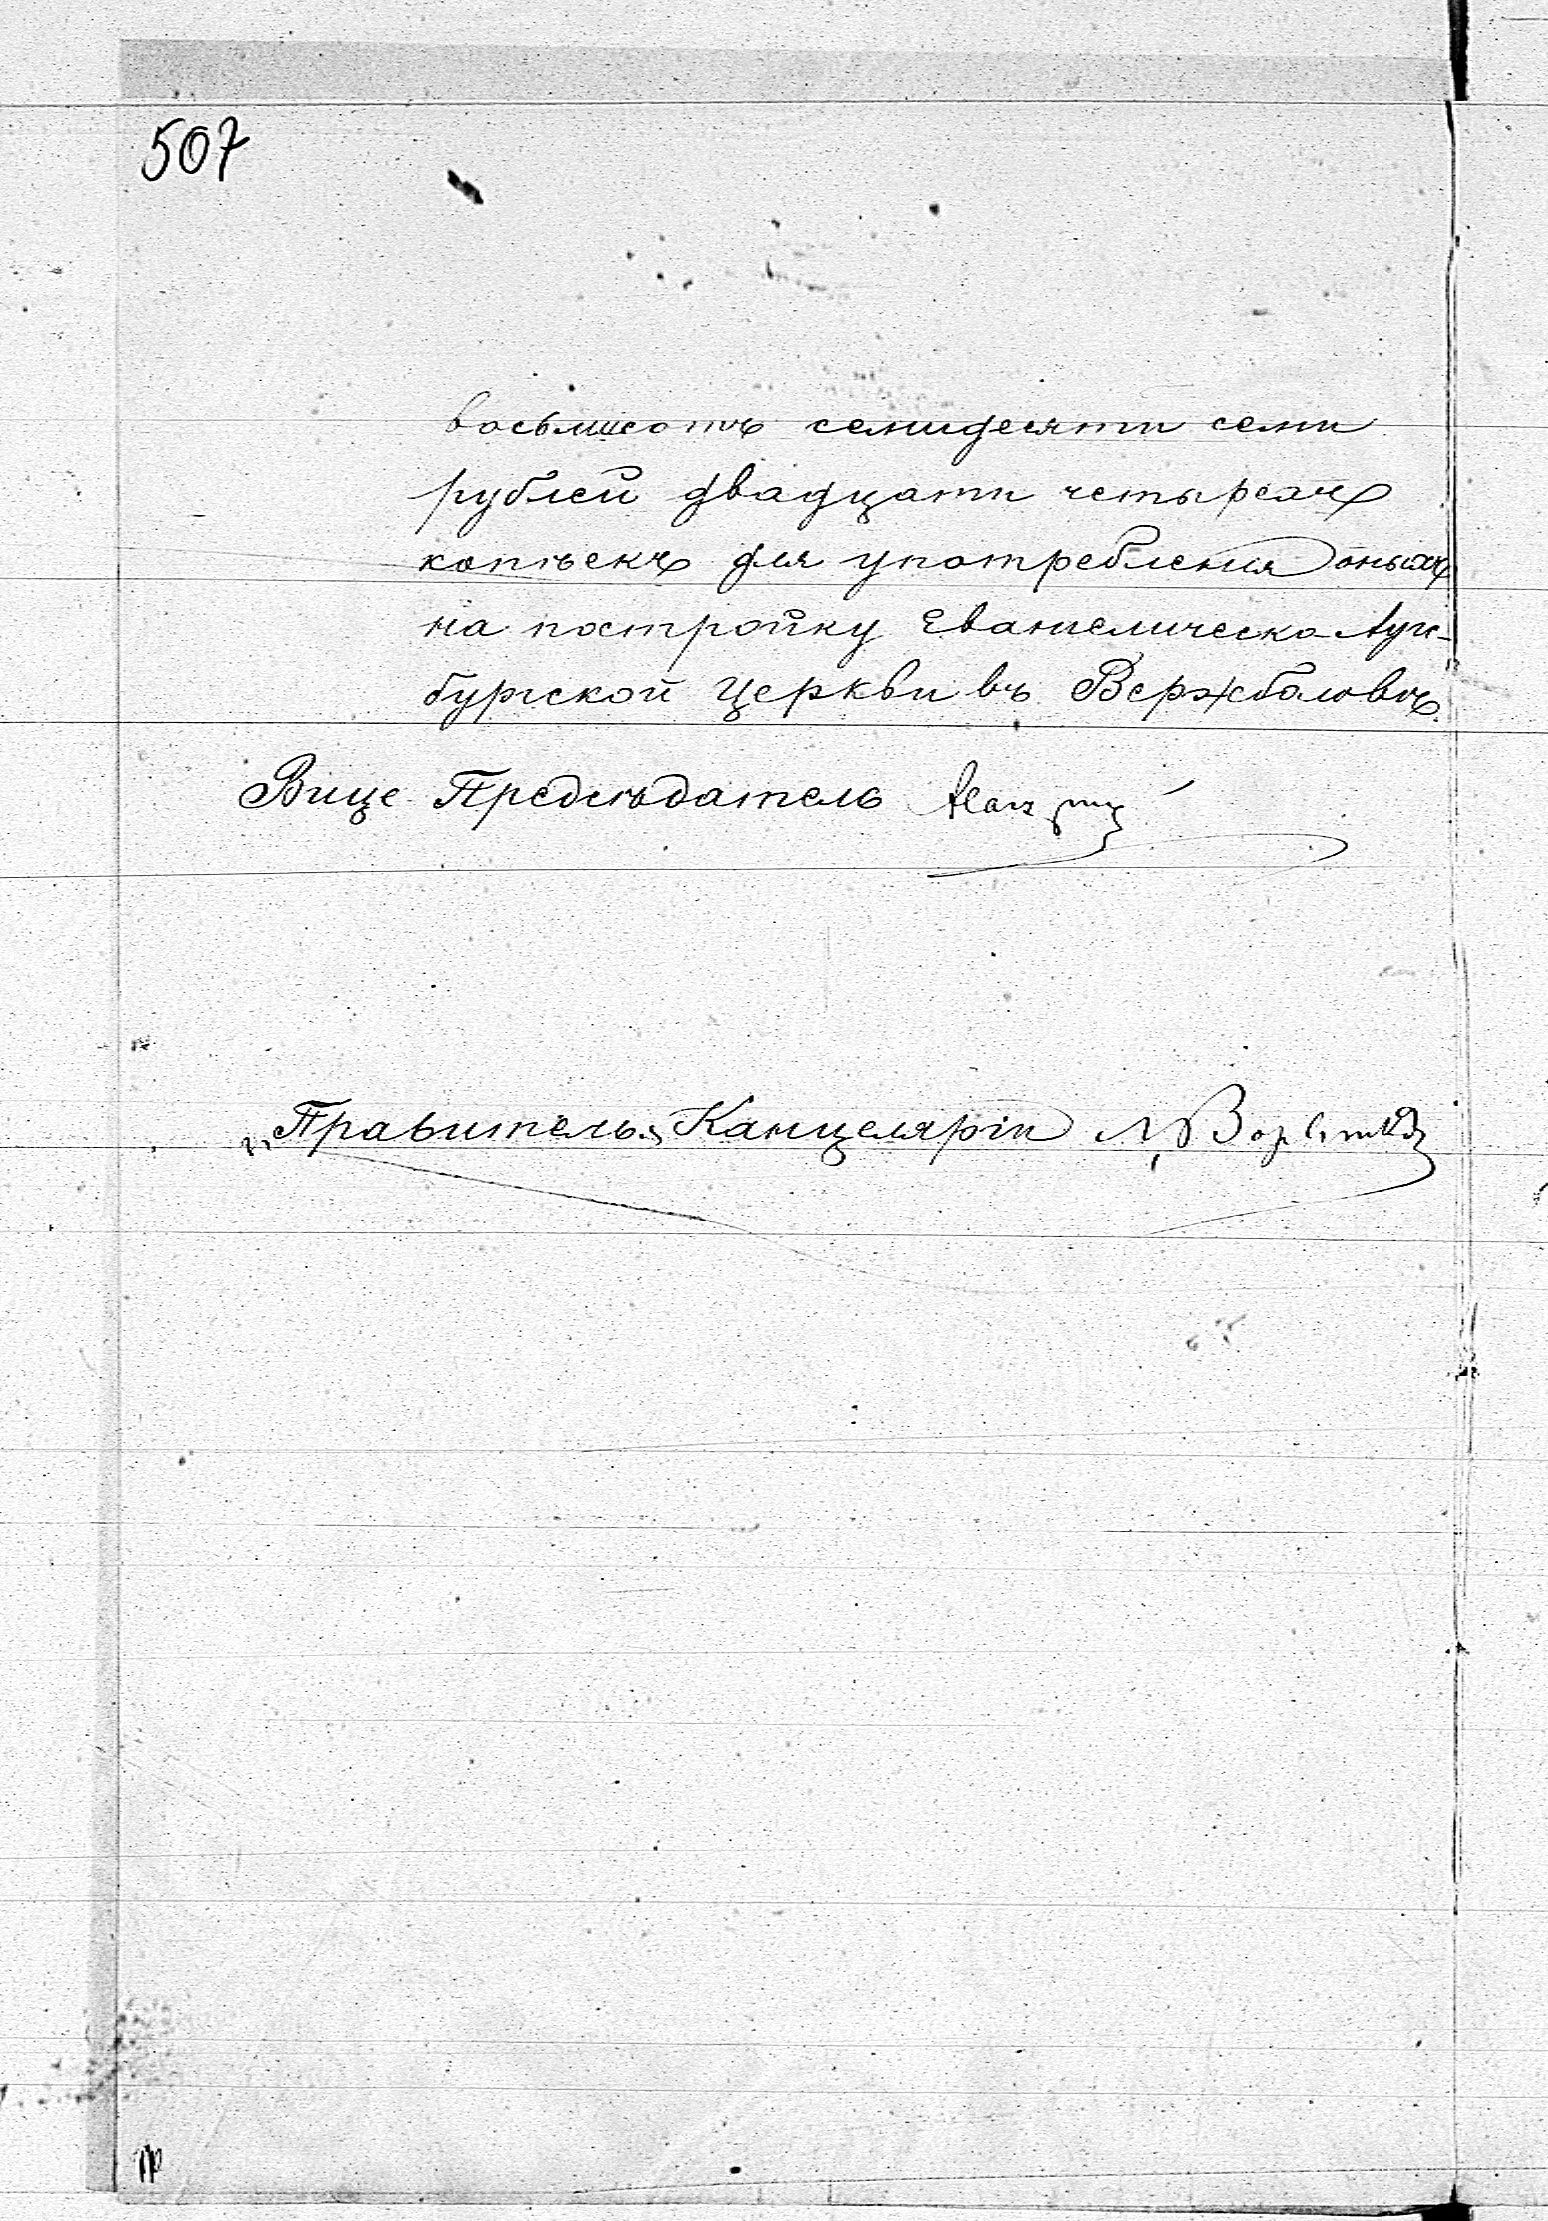 507
восьмисотъ семидесяти семи
рублей двадцати четырехъ
копѣекъ для употребленія оныхъ
на постройку Евангелическо-Аугс-
бургской Церкви въ Вержболовѣ.
Вице Предсѣдатель
Правитель Канцеляріи